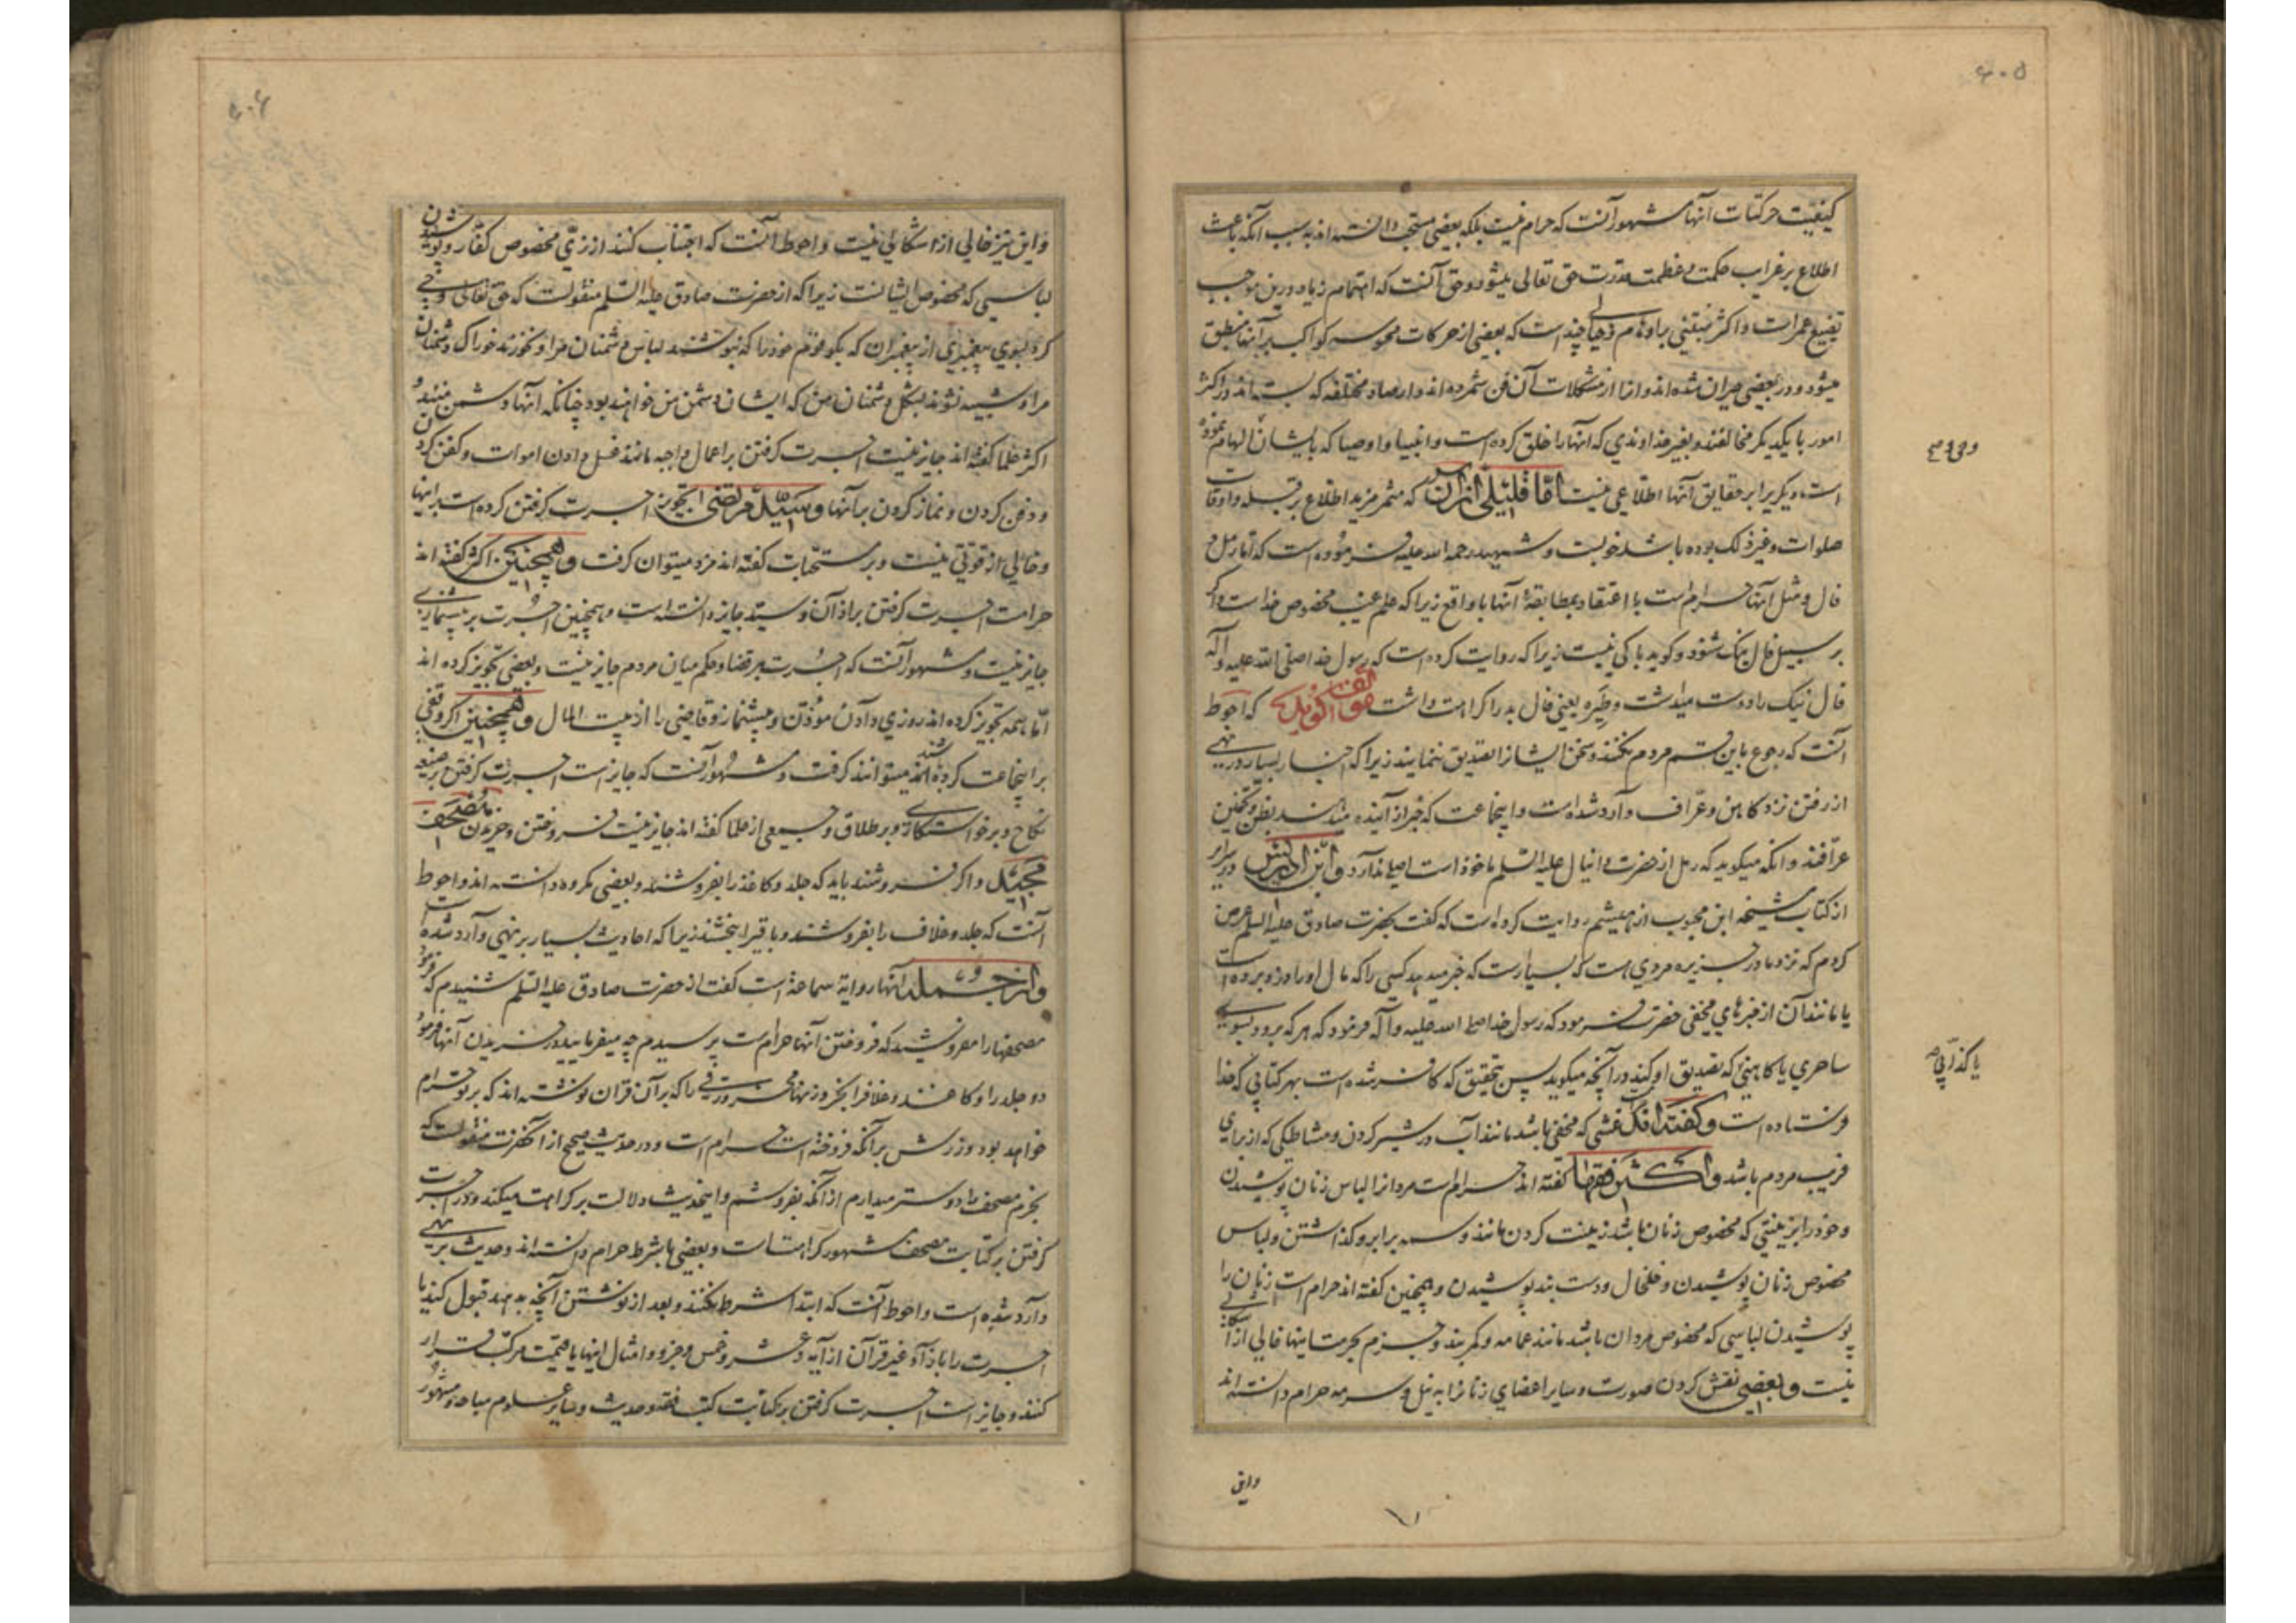 ۶۰۵
کیفیت حرکات آنها مشهور آنست که حرام نیست بلکه بعضی مستحب دانسته اند به سبب آنکه باعث
اطلاع بر غرایب حکمت و عظمت قدرت حق تعالی میشود و حق آنست که اهتمام زیاد درین موجب
تضییع عمر است و اکثر مبتنی بر اوهام و چند است که بعضی از حرکات محسوسه کواکب بر آنها منطبق
میشود و در بعضی حیران شده اند و از مشکلات آن فن شمرده اند و ارصاد مختلفه که بسته اند در اکثر
امور با یکدیگر مخالفند و بغیر خداوندی که آنها را خلق کرده است و انبیا و اوصیا که بایشان الهام نموده
است دیگری را بر حقایق آنها اطلاعی نیست امّا قلیلی از آن که مثمر مزید اطلاع بر قبله و اوقات
صلوات و غیر ذلک بوده باشد خوبست و شهید رحمه الله علیه فرموده است که اما رمل و
فال و مثل آنها حرام است با اعتقاد بمطابقهٔ آنها با واقع زیرا که علم غیب مخصوص خداست و اگر
بر سبیل فال نیک شود و گوید باکی نیست زیرا که روایت کرده است که رسول خدا صلی الله علیه و آله
فال نیک را دوست میداشت و طیره یعنی فال بد را کراهت داشت مؤلف گوید که احوط
آنست که رجوع باین قسم مردم نکنند و سخن ایشانرا تصدیق ننمایند زیرا که اخبار بسیار در نهی
از رفتن نزد کاهن و عرّاف وارد شده است و اینجماعت که خبر از آینده میدهند بظن و تخمین
عرّافند و آنکه میگوید که رمل از حضرت دانیال علیه السّلم ماخوذ است اصلی ندارد و ابن ادریس در سرایر
از کتاب مشیخه ابن محبوب از هیثم روایت کرده است که گفت بحضرت صادق علیه السلم عرض
کردم که نزد ما در جزیره مردی هست که بسیار است که خبر میدهد کسی را که مال او را دزد برده است
یا مانند آن از خبرهای مخفی حضرت فرمود که رسول خدا صلی الله علیه و آله فرمود که هر که برود بسوی
ساحری یا کاهنی که تصدیق او کند در آنچه میگوید پس بتحقیق که کافر شده است بهر کتابی که خدا
فرستاده است و گفته اند غشی که مخفی باشد مانند آب در شیر کردن و مشاطگی که از برای
فریب مردم باشد و اکثر فقها گفته اند حرام است مردانرا لباس زنان پوشیدن
و خود را بزینتی که مخصوص زنان باشد زینت کردن مانند وسمه بر ابرو گذاشتن و لباس
مخصوص زنان پوشیدن و خلخال و دست بند پوشیدن و همچنین گفته اند حرام است زنان را
پوشیدن لباسی که مخصوص مردان باشد مانند عمامه و کمربند و جزم بحرمت اینها خالی از اشکالی
نیست و بعضی نقش کردن صورت و سایر اعضای زنانرا به نیل و سرمه حرام دانسته اند
یا کذّابی
واین
۶۰۶
و این نیز خالی از اشکالی نیست و احوط آنست که اجتناب کنند از زیّ مخصوص کفّار و پوشیدن
لباسی که مخصوص ایشانست زیرا که از حضرت صادق علیه السّلم منقولست که حق تعالی وحی
کرد بسوی پیغمبری از پیغمبران که بگو قوم خود را که نپوشند لباس دشمنان مرا و نخورند خوراک دشمنان
مرا و شبیه نشوند بشکل دشمنان من که ایشان دشمن من خواهند بود چنانکه آنها دشمن منند و
اکثر علما گفته اند جایز نیست اجرت گرفتن بر اعمال واجبه مانند غسل دادن اموات و کفن کردن
و دفن کردن و نماز کردن بر آنها و سیّد مرتضی تجویز اجرت گرفتن کرده است بر اینها
و خالی از قوّتی نیست و بر مستحبّات گفته اند مزد میتوان گرفت و همچنین اکثر گفته اند
حرامست اجرت گرفتن بر اذان و سیّد جایز دانسته است و همچنین اجرت بر پیشنمازی
جایز نیست و مشهور آنست که اجرت بر قضا و حکم میان مردم جایز نیست و بعضی تجویز کرده اند
امّا همه تجویز کرده اند روزی دادن مؤذن و پیشنماز و قاضی را از بیت المال و همچنین اگر وقفی
بر اینجماعت کرده باشند میتوانند گرفت و مشهور آنست که جایز است اجرت گرفتن بر صیغه
نکاح و بر خواستگاری و بر طلاق و جمعی از علما گفته اند جایز نیست فروختن و خریدن مصحف
مجید و اگر فروشند باید که جلد و کاغذ را بفروشند و بعضی مکروه دانسته اند و احوط
آنست که جلد و غلاف را بفروشند و باقی را ببخشند زیرا که احادیث بسیار بر نهی وارد شده است
و از جمله آنها روایة سماعه است گفت از حضرت صادق علیه السّلم شنیدم که فرمود
مصحفها را مفروشید که فروختن آنها حرام است پرسیدم چه میفرمایید در خریدن آنها فرمود
دو جلد را و کاغذ و غلاف را بخر و زنهار مخر ورقی را که بر آن قران نوشته اند که بر تو حرام
خواهد بود و زرش بر آنکه فروخته است حرام است و در حدیث صحیح از آنحضرت منقولست که
بخرم مصحف را دوستر میدارم از آنکه بفروشم و اینحدیث دلالت بر کراهت میکند و در اجرت
گرفتن بر کتابت مصحف مشهور کراهتست و بعضی با شرط حرام دانسته اند و حدیث بر نهی
وارد شده است و احوط آنست که ابتدا شرط نکنند و بعد از نوشتن آنچه بدهد قبول کند یا
اجرت را بازاء غیر قرآن از آیه و عشر و خمس و جزو و امثال اینها با قیمت مرکّب قرار
کنند و جایز است اجرت گرفتن بر کتابت کتب فقه و حدیث و سایر علوم مباحه و مشهور